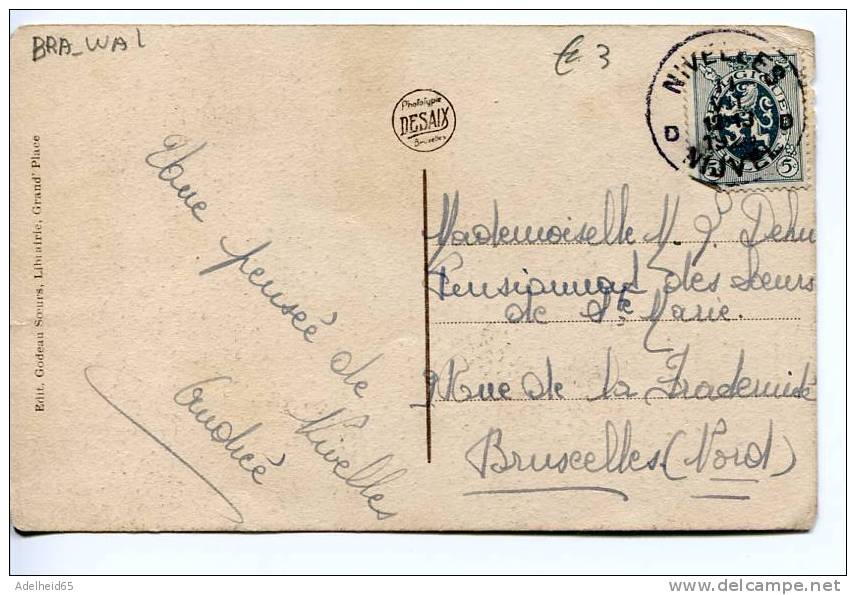 BRA_WAL
€ 3
Phototypie
DESAIX
Bruxelles
NIVELLES
BELGIQUE
D D
NIJVEL
5c
Edit. Godeau Sœurs, Librairie, Grand' Place
Une pensée de Nivelles
Andrée
Mademoiselle M. J Dehu
Pensionnat des Sœurs
de Ste Marie.
Rue de la Fraternité
Bruxelles (Nord)
Adelheid65
delcampe.net